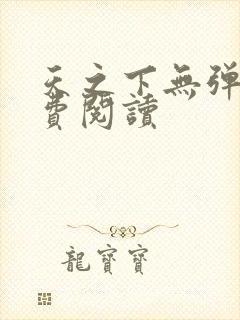 天之下無弹
費閱讀
龍寶寶